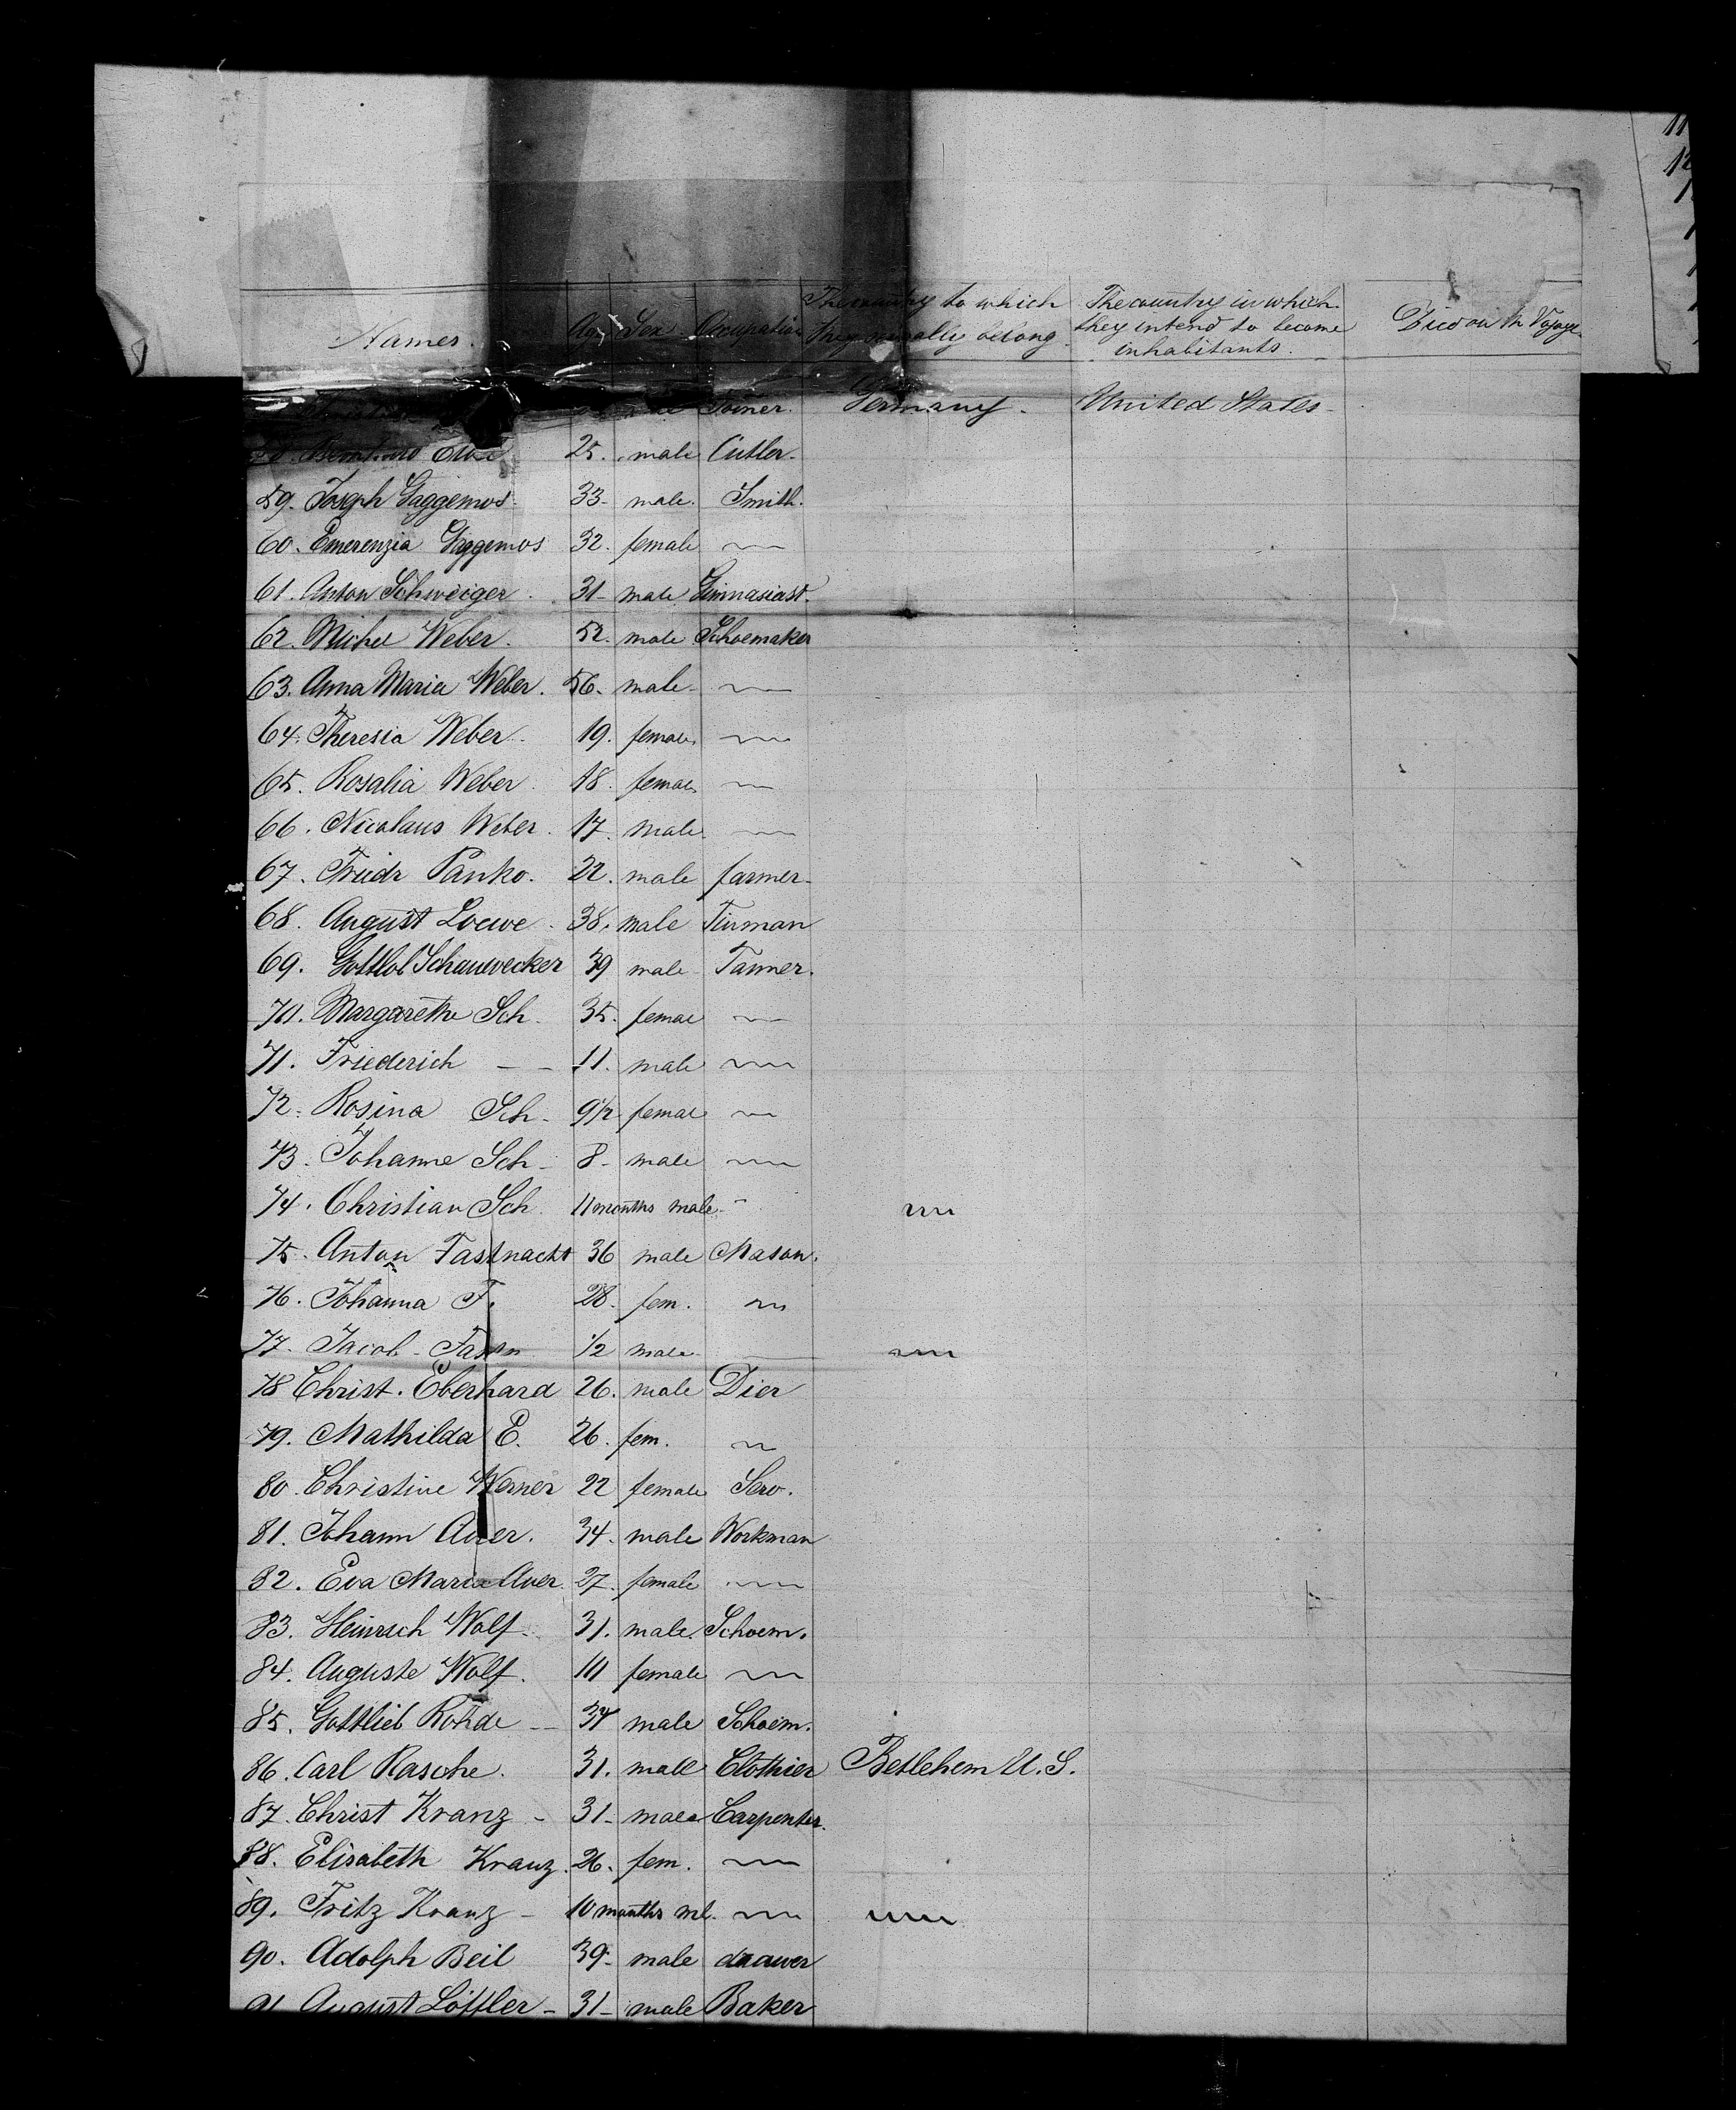 Names. Age Sex Occupation The country to which they severally belong. The country in which they intend to become inhabitants. Died on the Voyage
Joiner. Germany. United States
25. male Cutler.
59. Joseph Gaggemos 33 male. Smith.
60. Emerenzia Gaggemos 32. female
61. Anton Schweiger. 31 male Gimnasiast.
62. Michel Weber. 52. male Schoemaker
63. Anna Maria Weber. 56. male
64. Theresia Weber 19. female
65. Rosalia Weber 18. femae
66. Nicolaus Weber. 17. male
67. Friedr Panko. 22. male farmer
68. August Loewe. 38. male Tinman
69. Gottlob Schauwecker 39 male Tanner.
70. Margarethe Sch. 35. femae
71. Friederich - - 11. male
72. Rosina Sch 9 1/2 femae
73. Johanne Sch 8 male
74. Christian Sch. 11 months male
75. Anton Fastnacht 36 male Mason.
76. Johanna F. 28. fem.
77. Jacob Fastn 1/2 male
78 Christ. Eberhard 26. male Dier
79. Mathilda E. 26. fem.
80. Christine Werner 22 female Serv.
81. Johann Auer. 34. male Workman
82. Eva Maria Auer 27. female
83. Heinrich Wolf. 31. male. Schoem.
84. Auguste Wolf. female
85. Gottlieb Rohde 34 male Schoem.
86. Carl Rasche. 31. male Clothier Betlehem U.S.
87. Christ Kranz 31 male Carpenter.
88. Elisabeth Kranz. 26. fem.
89. Fritz Kranz 10 months ml.
90. Adolph Beil 39. male drawer
91 August Löffler 31 male Baker